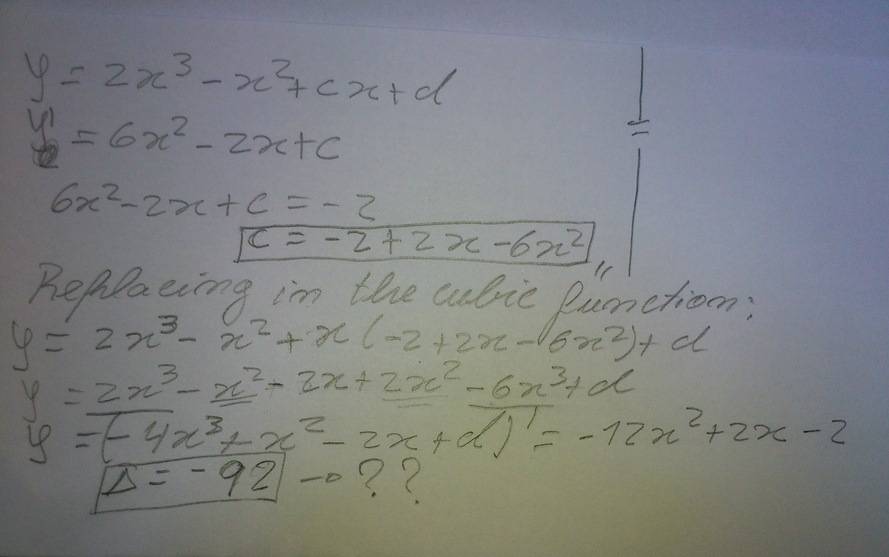 y = 2x³ - x² + cx + d
y' = 6x² - 2x + c
6x² - 2x + c = -2
c = -2 + 2x - 6x²
Replacing in the cubic function:
y = 2x³ - x² + x(-2 + 2x - 6x²) + d
y = 2x³ - x² - 2x + 2x² - 6x³ + d
y = (-4x³ + x² - 2x + d)' = -12x² + 2x - 2
Δ = -92 → ??